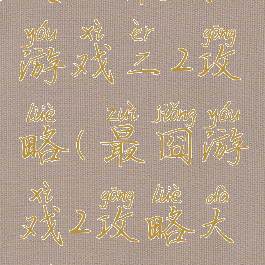 yóu xì èr gōng
游戏二2攻
lüè zuì jiǒng yóu
略(最囧游
xì gōng lüè dà
戏2攻略大